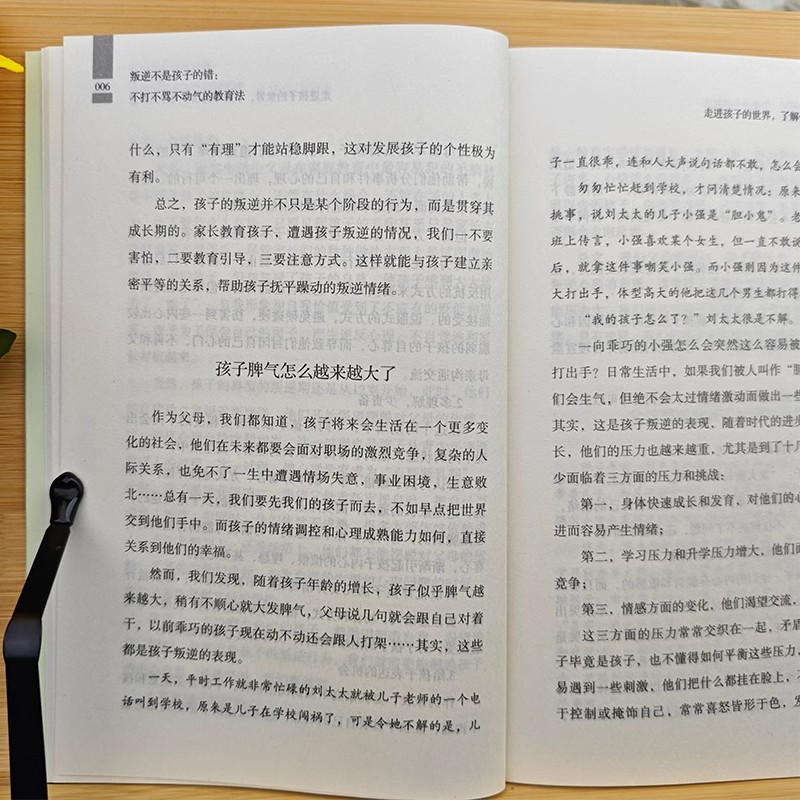 006
叛逆不是孩子的错：
不打不骂不动气的教育法
什么，只有“有理”才能站稳脚跟，这对发展孩子的个性极为
有利。
总之，孩子的叛逆并不只是某个阶段的行为，而是贯穿其
成长期的。家长教育孩子，遭遇孩子叛逆的情况，我们一不要
害怕，二要教育引导，三要注意方式。这样就能与孩子建立亲
密平等的关系，帮助孩子抚平躁动的叛逆情绪。
孩子脾气怎么越来越大了
作为父母，我们都知道，孩子将来会生活在一个更多变
化的社会，他们在未来都要会面对职场的激烈竞争，复杂的人
际关系，也免不了一生中遭遇情场失意，事业困境，生意败
北……总有一天，我们要先我们的孩子而去，不如早点把世界
交到他们手中。而孩子的情绪调控和心理成熟能力如何，直接
关系到他们的幸福。
然而，我们发现，随着孩子年龄的增长，孩子似乎脾气越
来越大，稍有不顺心就大发脾气，父母说几句就会跟自己对着
干，以前乖巧的孩子现在动不动还会跟人打架……其实，这些
都是孩子叛逆的表现。
一天，平时工作就非常忙碌的刘太太就被儿子老师的一个电
话叫到学校，原来是儿子在学校闯祸了，可是令她不解的是，儿
走进孩子的世界，了解
子一直很乖，连和人大声说句话都不敢，怎么会
匆匆忙忙赶到学校，才问清楚情况：原来
挑事，说刘太太的儿子小强是“胆小鬼”。老
班上传言，小强喜欢某个女生，但一直不敢说
后，就拿这件事嘲笑小强。而小强则因为这件
大打出手，体型高大的他把这几个男生都打得
“我的孩子怎么了？”刘太太很是不解。
一向乖巧的小强怎么会突然这么容易被
打出手？日常生活中，如果我们被人叫作“胆
们会生气，但绝不会太过情绪激动而做出一些
其实，这是孩子叛逆的表现，随着时代的进步
长，他们的压力也越来越重，尤其是到了十几
少面临着三方面的压力和挑战：
第一，身体快速成长和发育、对他们的心
进而容易产生情绪；
第二，学习压力和升学压力增大，他们面
竞争；
第三，情感方面的变化、他们渴望交流，
这三方面的压力常常交织在一起，矛盾
子毕竟是孩子，也不懂得如何平衡这些压力，
易遇到一些刺激、他们把什么都挂在脸上，不
于控制或掩饰自己，常常喜怒皆形于色，发